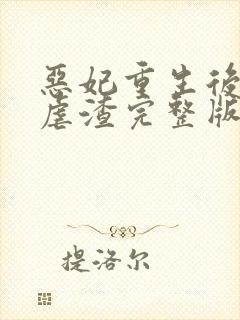 惡妃重生後
虐渣完整版
提洛尔